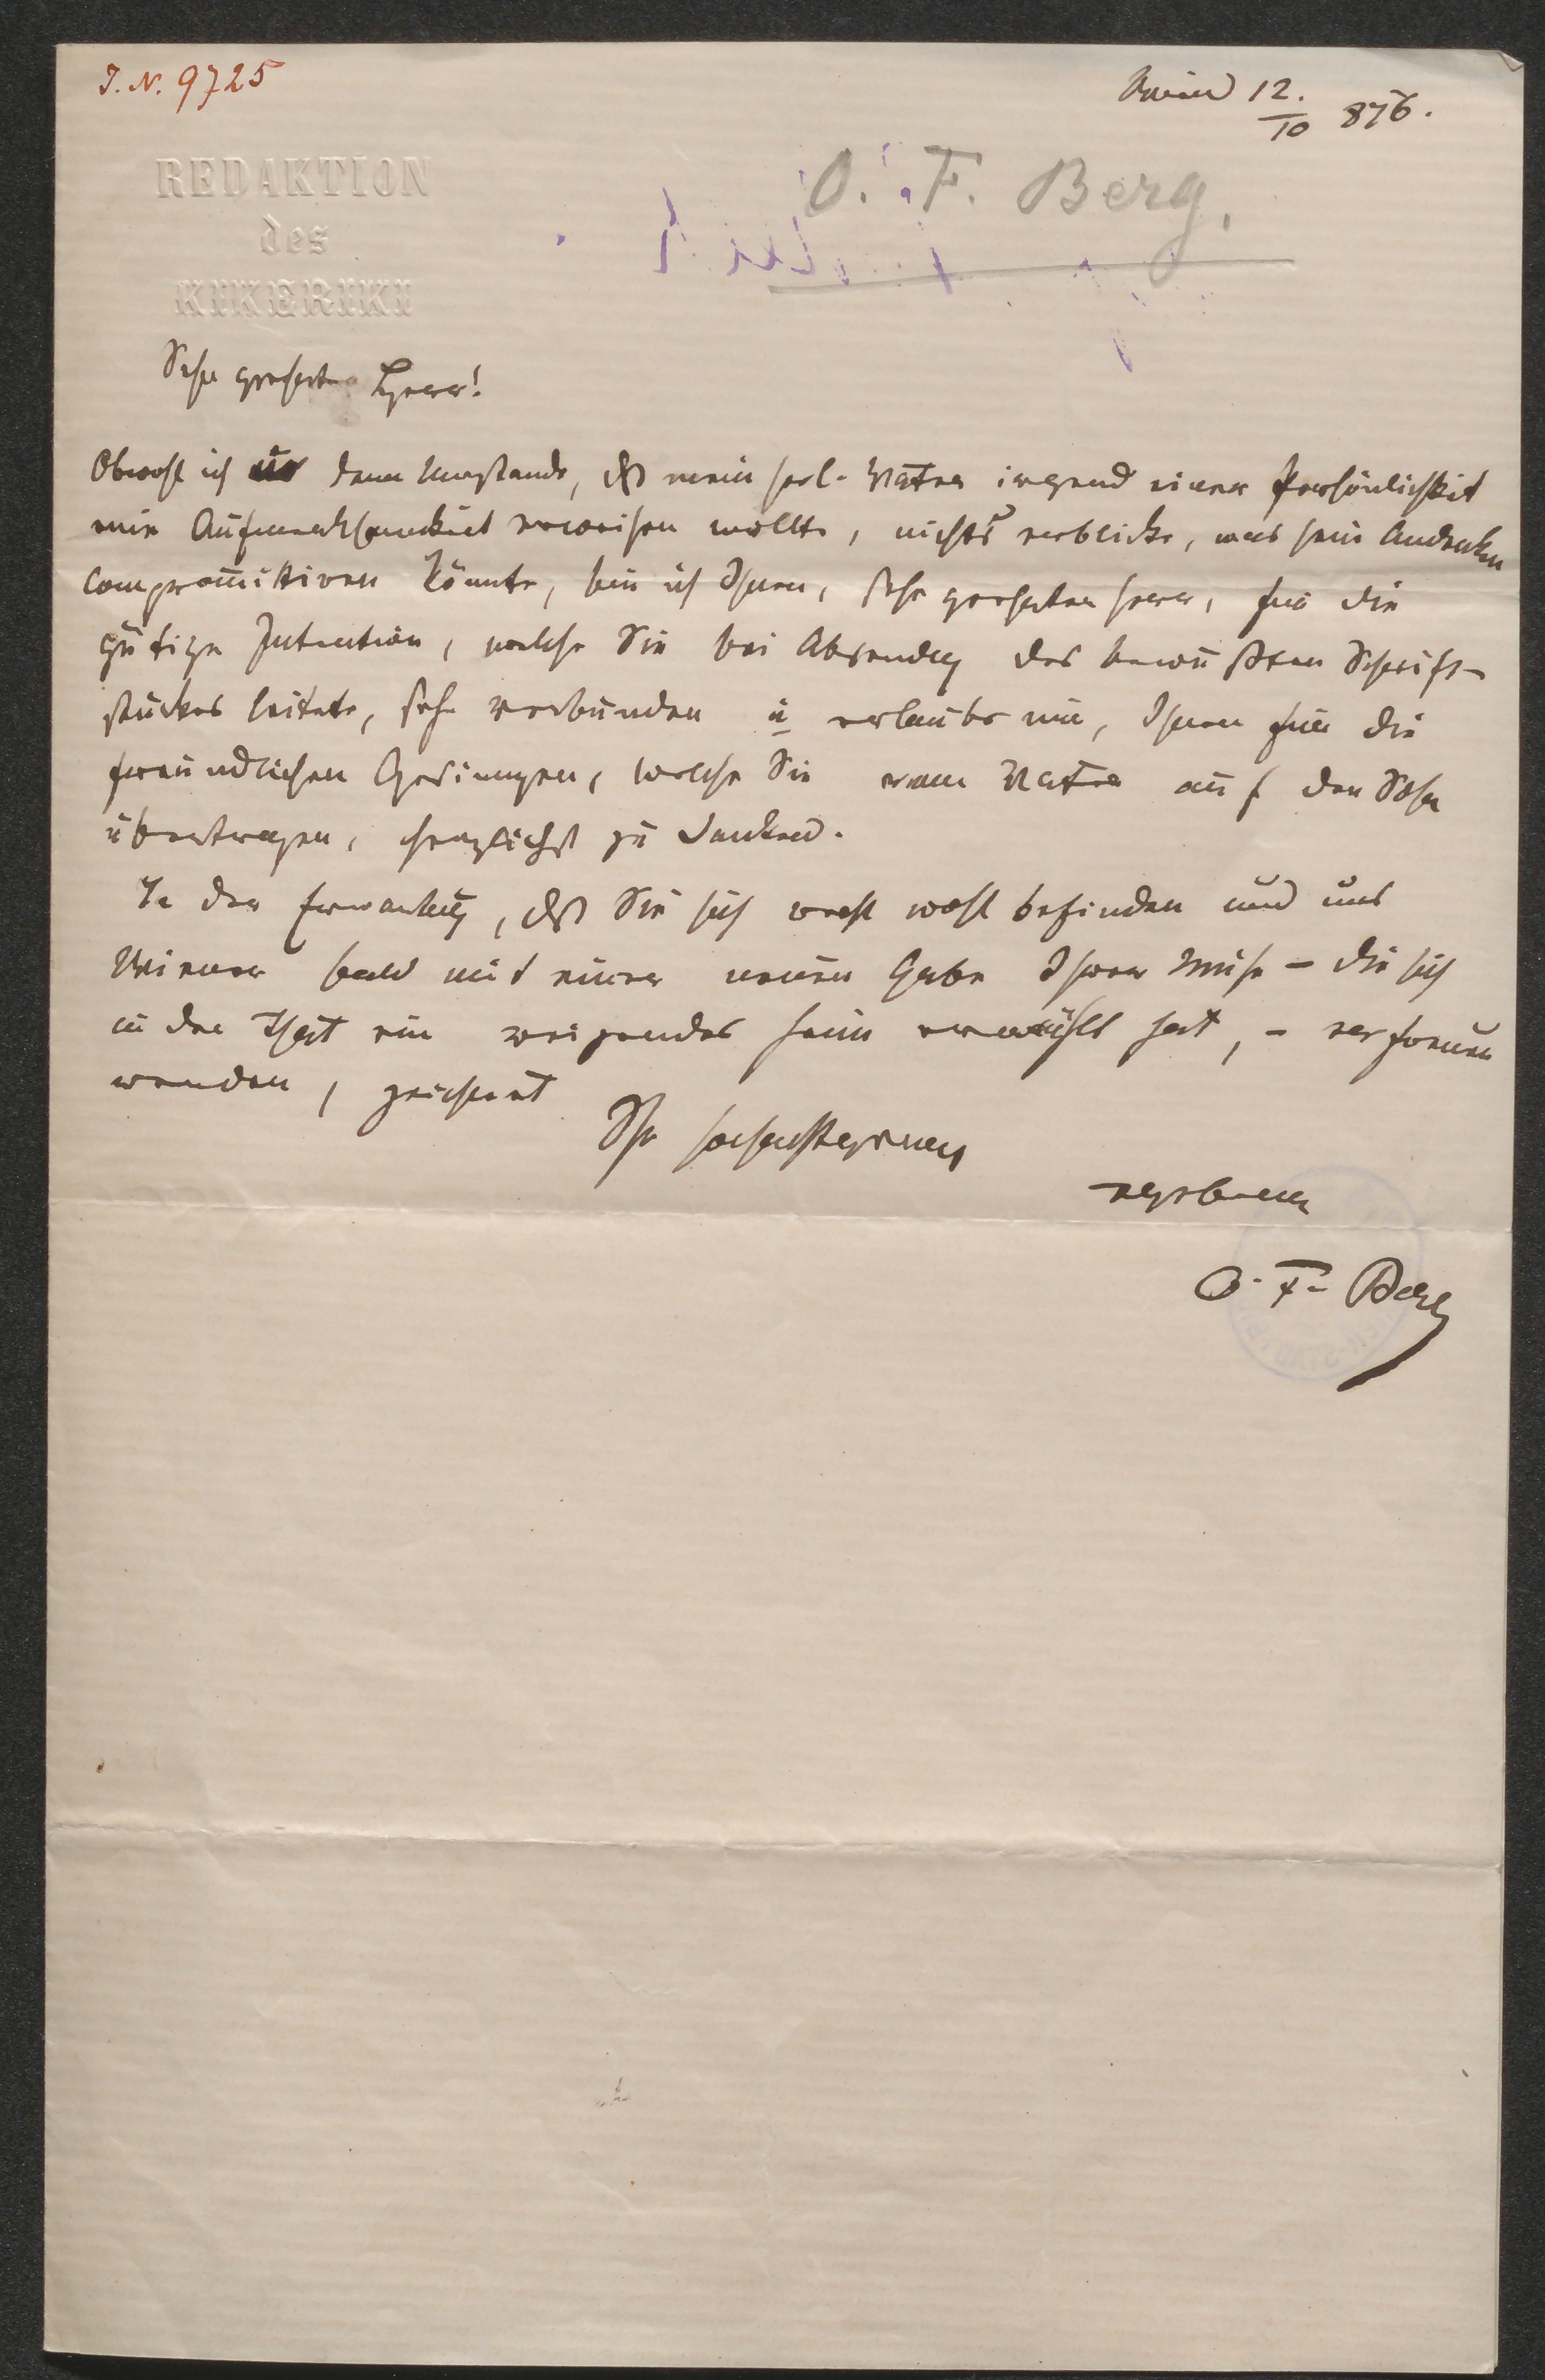 I. N. 9725
Wien 12./10 876.
REDAKTION
des
KIKERIKI
O. F. Berg.
Sehr geehrter Herr!
Obwohl ich in dem Umstande, daß mein sel. Vater irgend einer Persönlichkeit
eine Aufmerksamkeit erweisen wollte, nichts erblicke, was sein Andenken
compromittiren könnte, bin ich Ihnen, sehr geehrter Herr, für die
gütige Intention, welche Sie bei Absendung des bewußten Schrift-
stückes leitete, sehr verbunden u erlaube mir, Ihnen für die
freundlichen Gesinnungen, welche Sie vom Vater auf den Sohn
übertragen, herzlichst zu danken.
In der Erwartung, daß Sie sich recht wohl befinden und uns
Wiener bald mit einer neuen Gabe Ihrer Muse – die sich
in der That ein reizendes Heim erwählt hat, – erfreuen
werden, zeichnet
Ihr hochachtungsvoll
ergebener
O. F. Berg